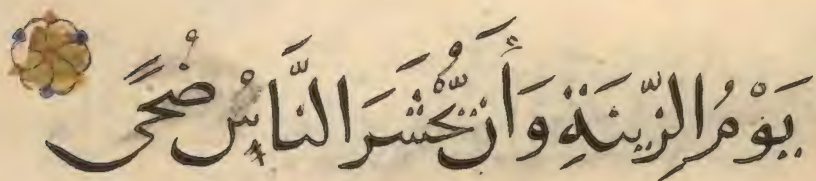 يَوْمُ الزِّينَةِ وَأَنْ يُحْشَرَ النَّاسُ ضُحًى